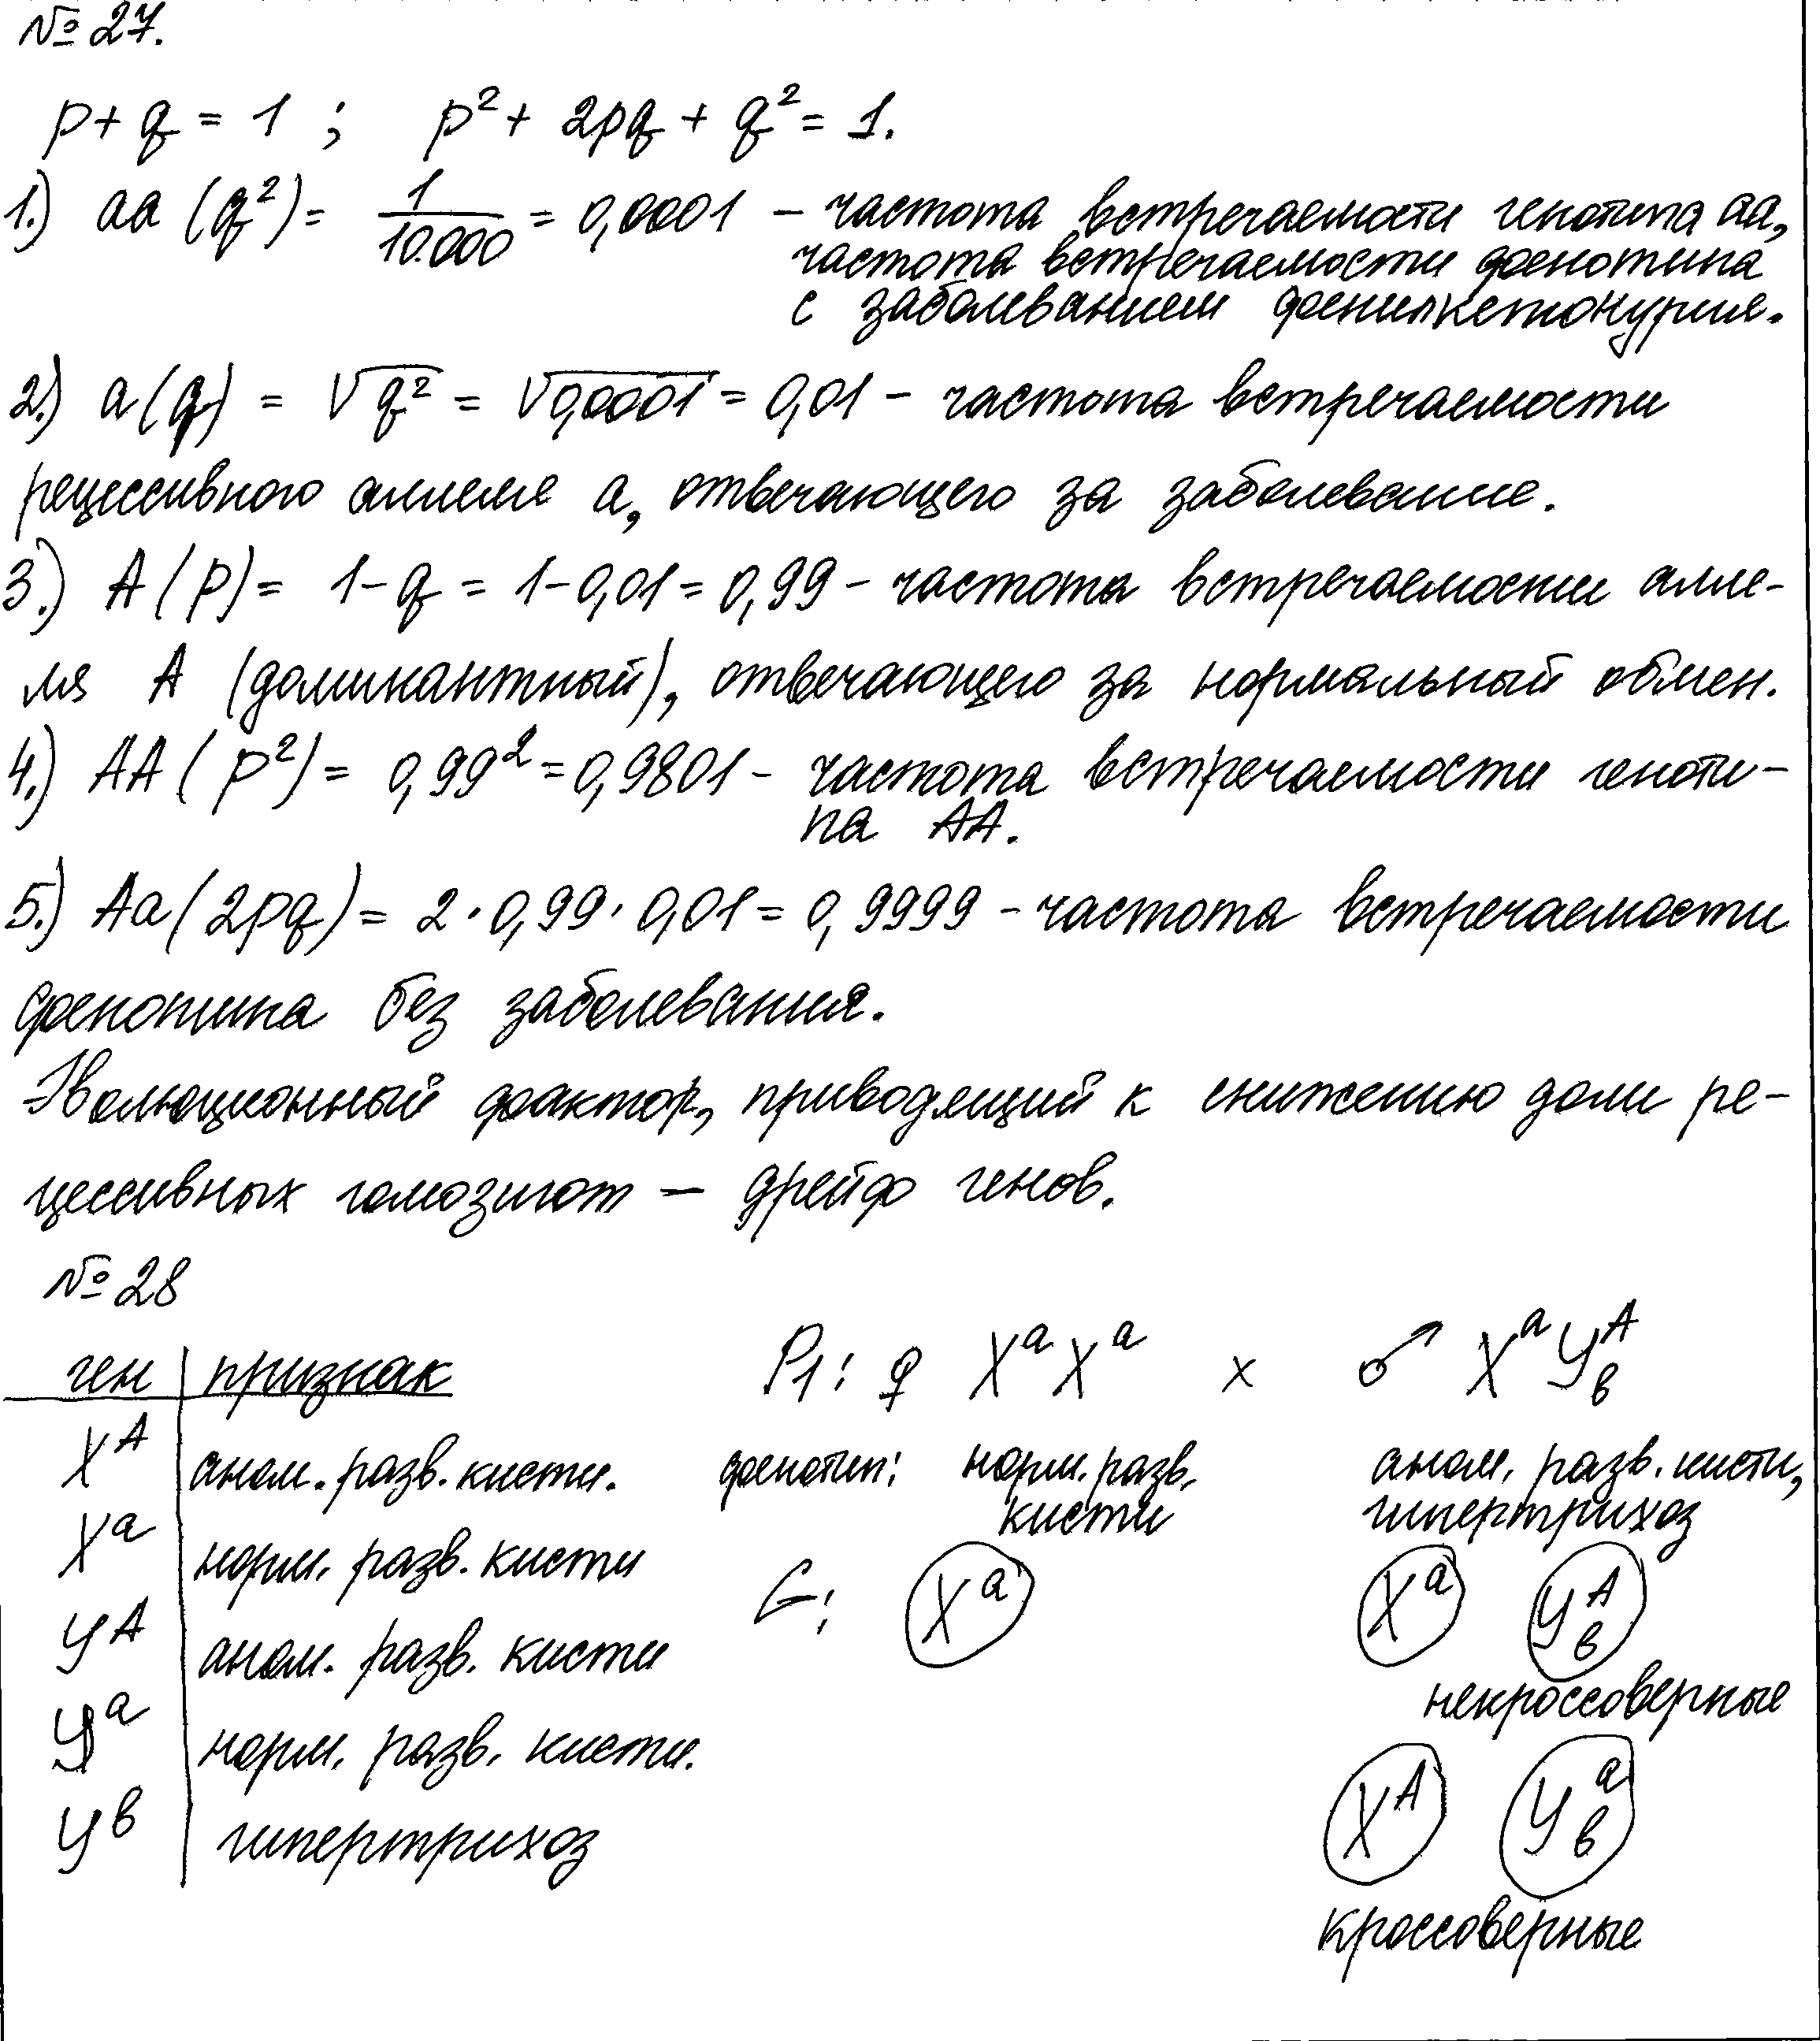 № 27.
p + q = 1 ; p² + 2pq + q² = 1.
1.) aa (q²) = 1/10.000 = 0,0001 – частота встречаемости генотипа аа,
частота встречаемости фенотипа
с заболеванием фенилкетонурия.
2.) a(q) = √q² = √0,0001 = 0,01 – частота встречаемости
рецессивного аллеля а, отвечающего за заболевание.
3.) A(p) = 1 – q = 1 – 0,01 = 0,99 – частота встречаемости алле-
ля А (доминантный), отвечающего за нормальный обмен.
4.) AA (p²) = 0,99² = 0,9801 – частота встречаемости геноти-
па АА.
5.) Aa (2pq) = 2 · 0,99 · 0,01 = 0,9999 – частота встречаемости
фенотипа без заболевания.
Эволюционный фактор, приводящий к снижению доли ре-
цессивных гомозигот — дрейф генов.
№ 28
ген | признак
X^A | аном. разв. кисти.
X^a | норм. разв. кисти
Y^A | аном. разв. кисти
Y^a | норм. разв. кисти.
Y^в | гипертрихоз
P1: ♀ X^a X^a x ♂ X^a Y^A_в
фенотип: норм. разв. кисти аном. разв. кисти,
гипертрихоз
G: X^a X^a Y^A_в
некроссоверные
X^A Y^a_в
кроссоверные